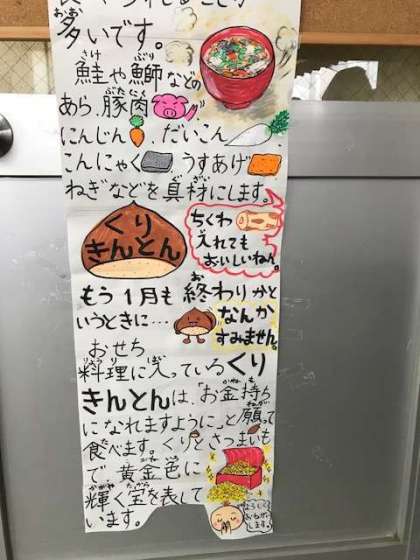 多いです。
鮭や鰤などの
あら、豚肉
にんじん、だいこん
こんにゃく うすあげ
ねぎなどを具材にします。
くり
きんとん
ちくわ
入れても
おいしいねん。
もう1月も終わりかと
いうときに…
なんか
すみません。
おせち
料理に入っているくり
きんとんは、「お金持ち
になれますように」と願って
食べます。くりとさつまいも
で黄金色に
輝く宝を表して
います。